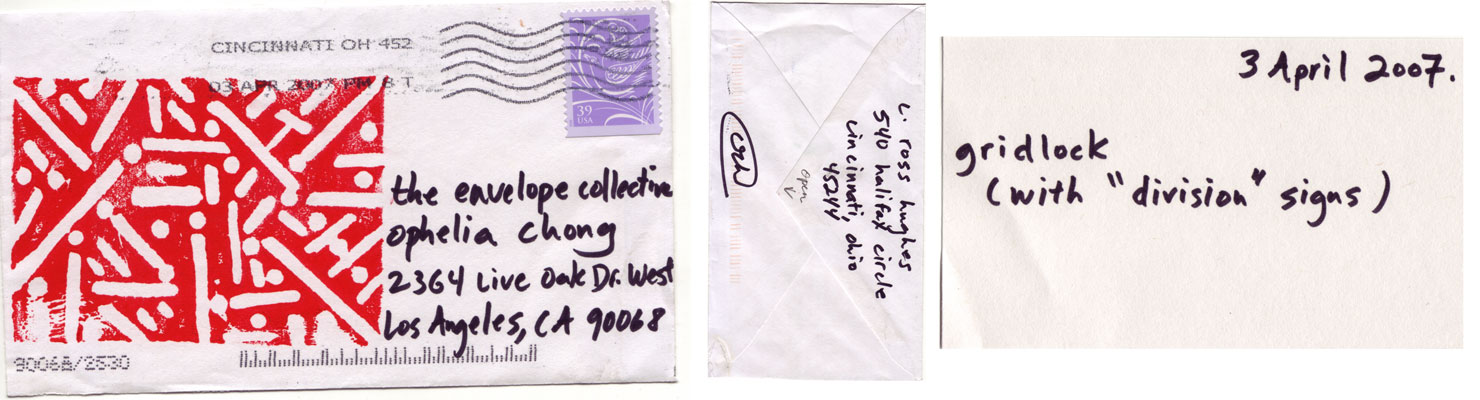 CINCINNATI OH 452
03 APR 2007 PM 8 T
39
USA
the envelope collective
ophelia chong
2364 Live Oak Dr. West
Los Angeles, CA 90068
90068/2530
L. ross hughes
540 halifax circle
cincinnati, ohio
45244
open
crh
3 April 2007.
gridlock
(with "division" signs)